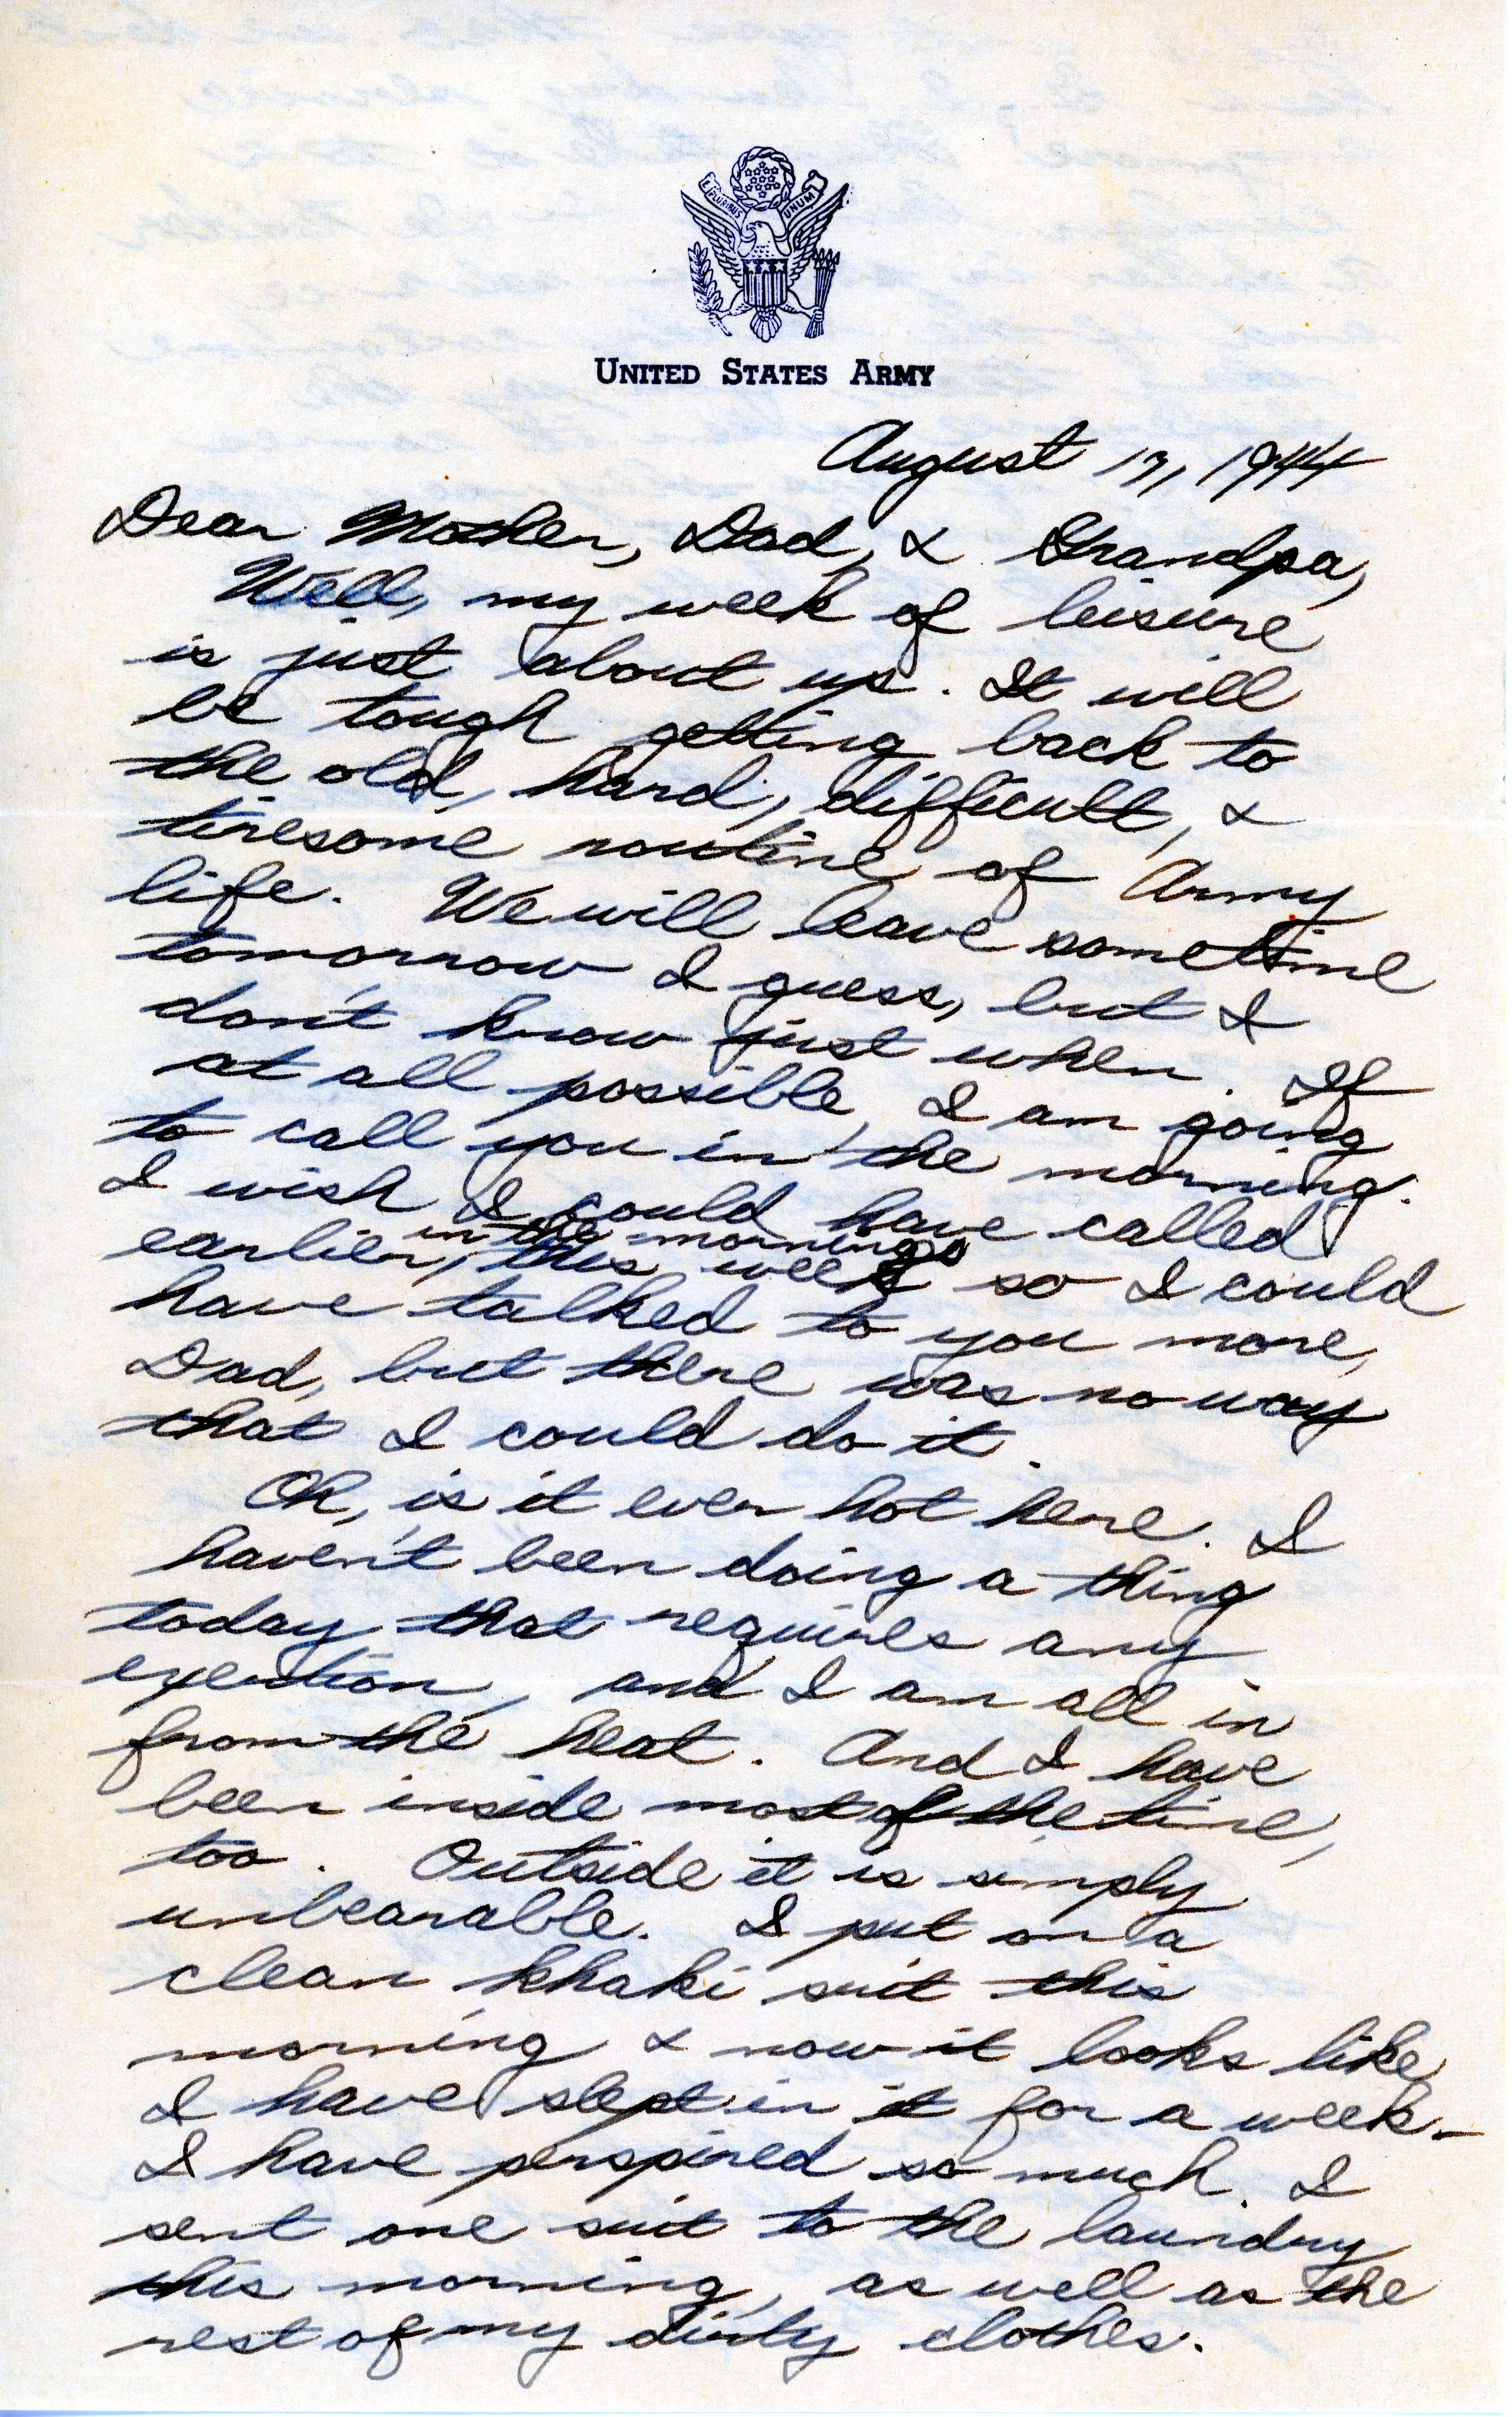 E PLURIBUS UNUM
UNITED STATES ARMY
August 17, 1944
Dear Mother, Dad, & Grandpa,
Well, my week of leisure
is just about up. It will
be tough getting back to
the old, hard, difficult, &
tiresome routine of Army
life. We will leave sometime
tomorrow I guess, but I
don't know just when. If
at all possible, I am going
to call you in the morning.
I wish I could have called
in the morning
earlier, this week so I could
have talked to you more,
Dad, but there was no way
that I could do it.
Oh, is it ever hot here. I
haven't been doing a thing
today that requires any
exertion, and I am all in
from the heat. And I have
been inside most of the time,
too. Outside it is simply
unbearable. I put on a
clean khaki suit this
morning & now it looks like
I have slept in it for a week -
I have perspired so much. I
sent one suit to the laundry
this morning, as well as the
rest of my dirty clothes.